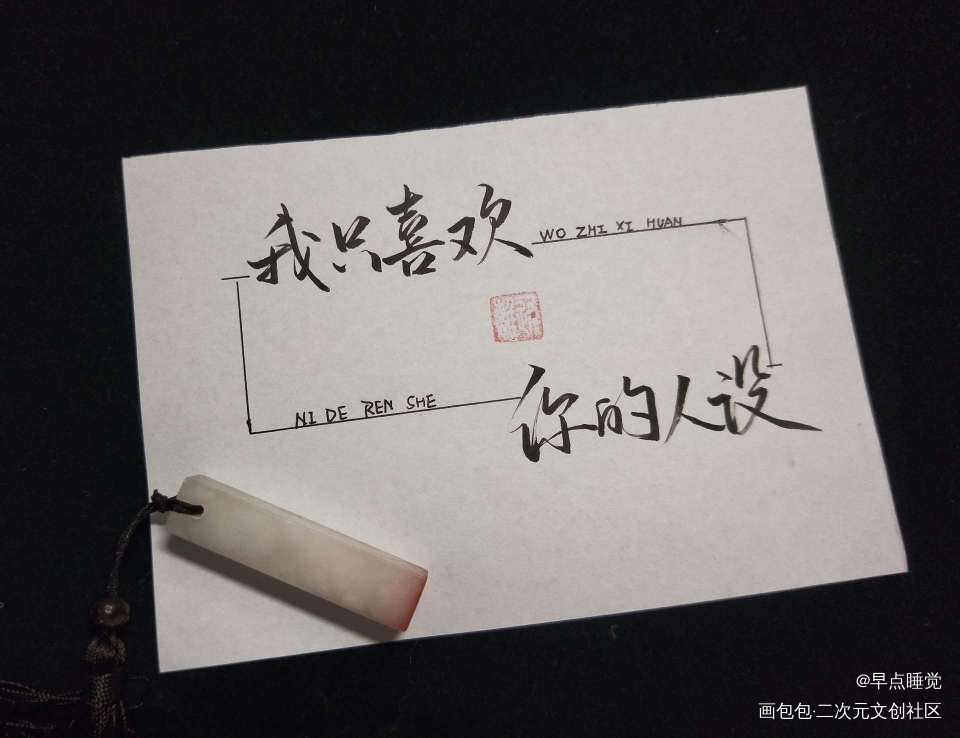 我只喜欢
WO ZHI XI HUAN
NI DE REN SHE
你的人设
@早点睡觉
画包包·二次元文创社区